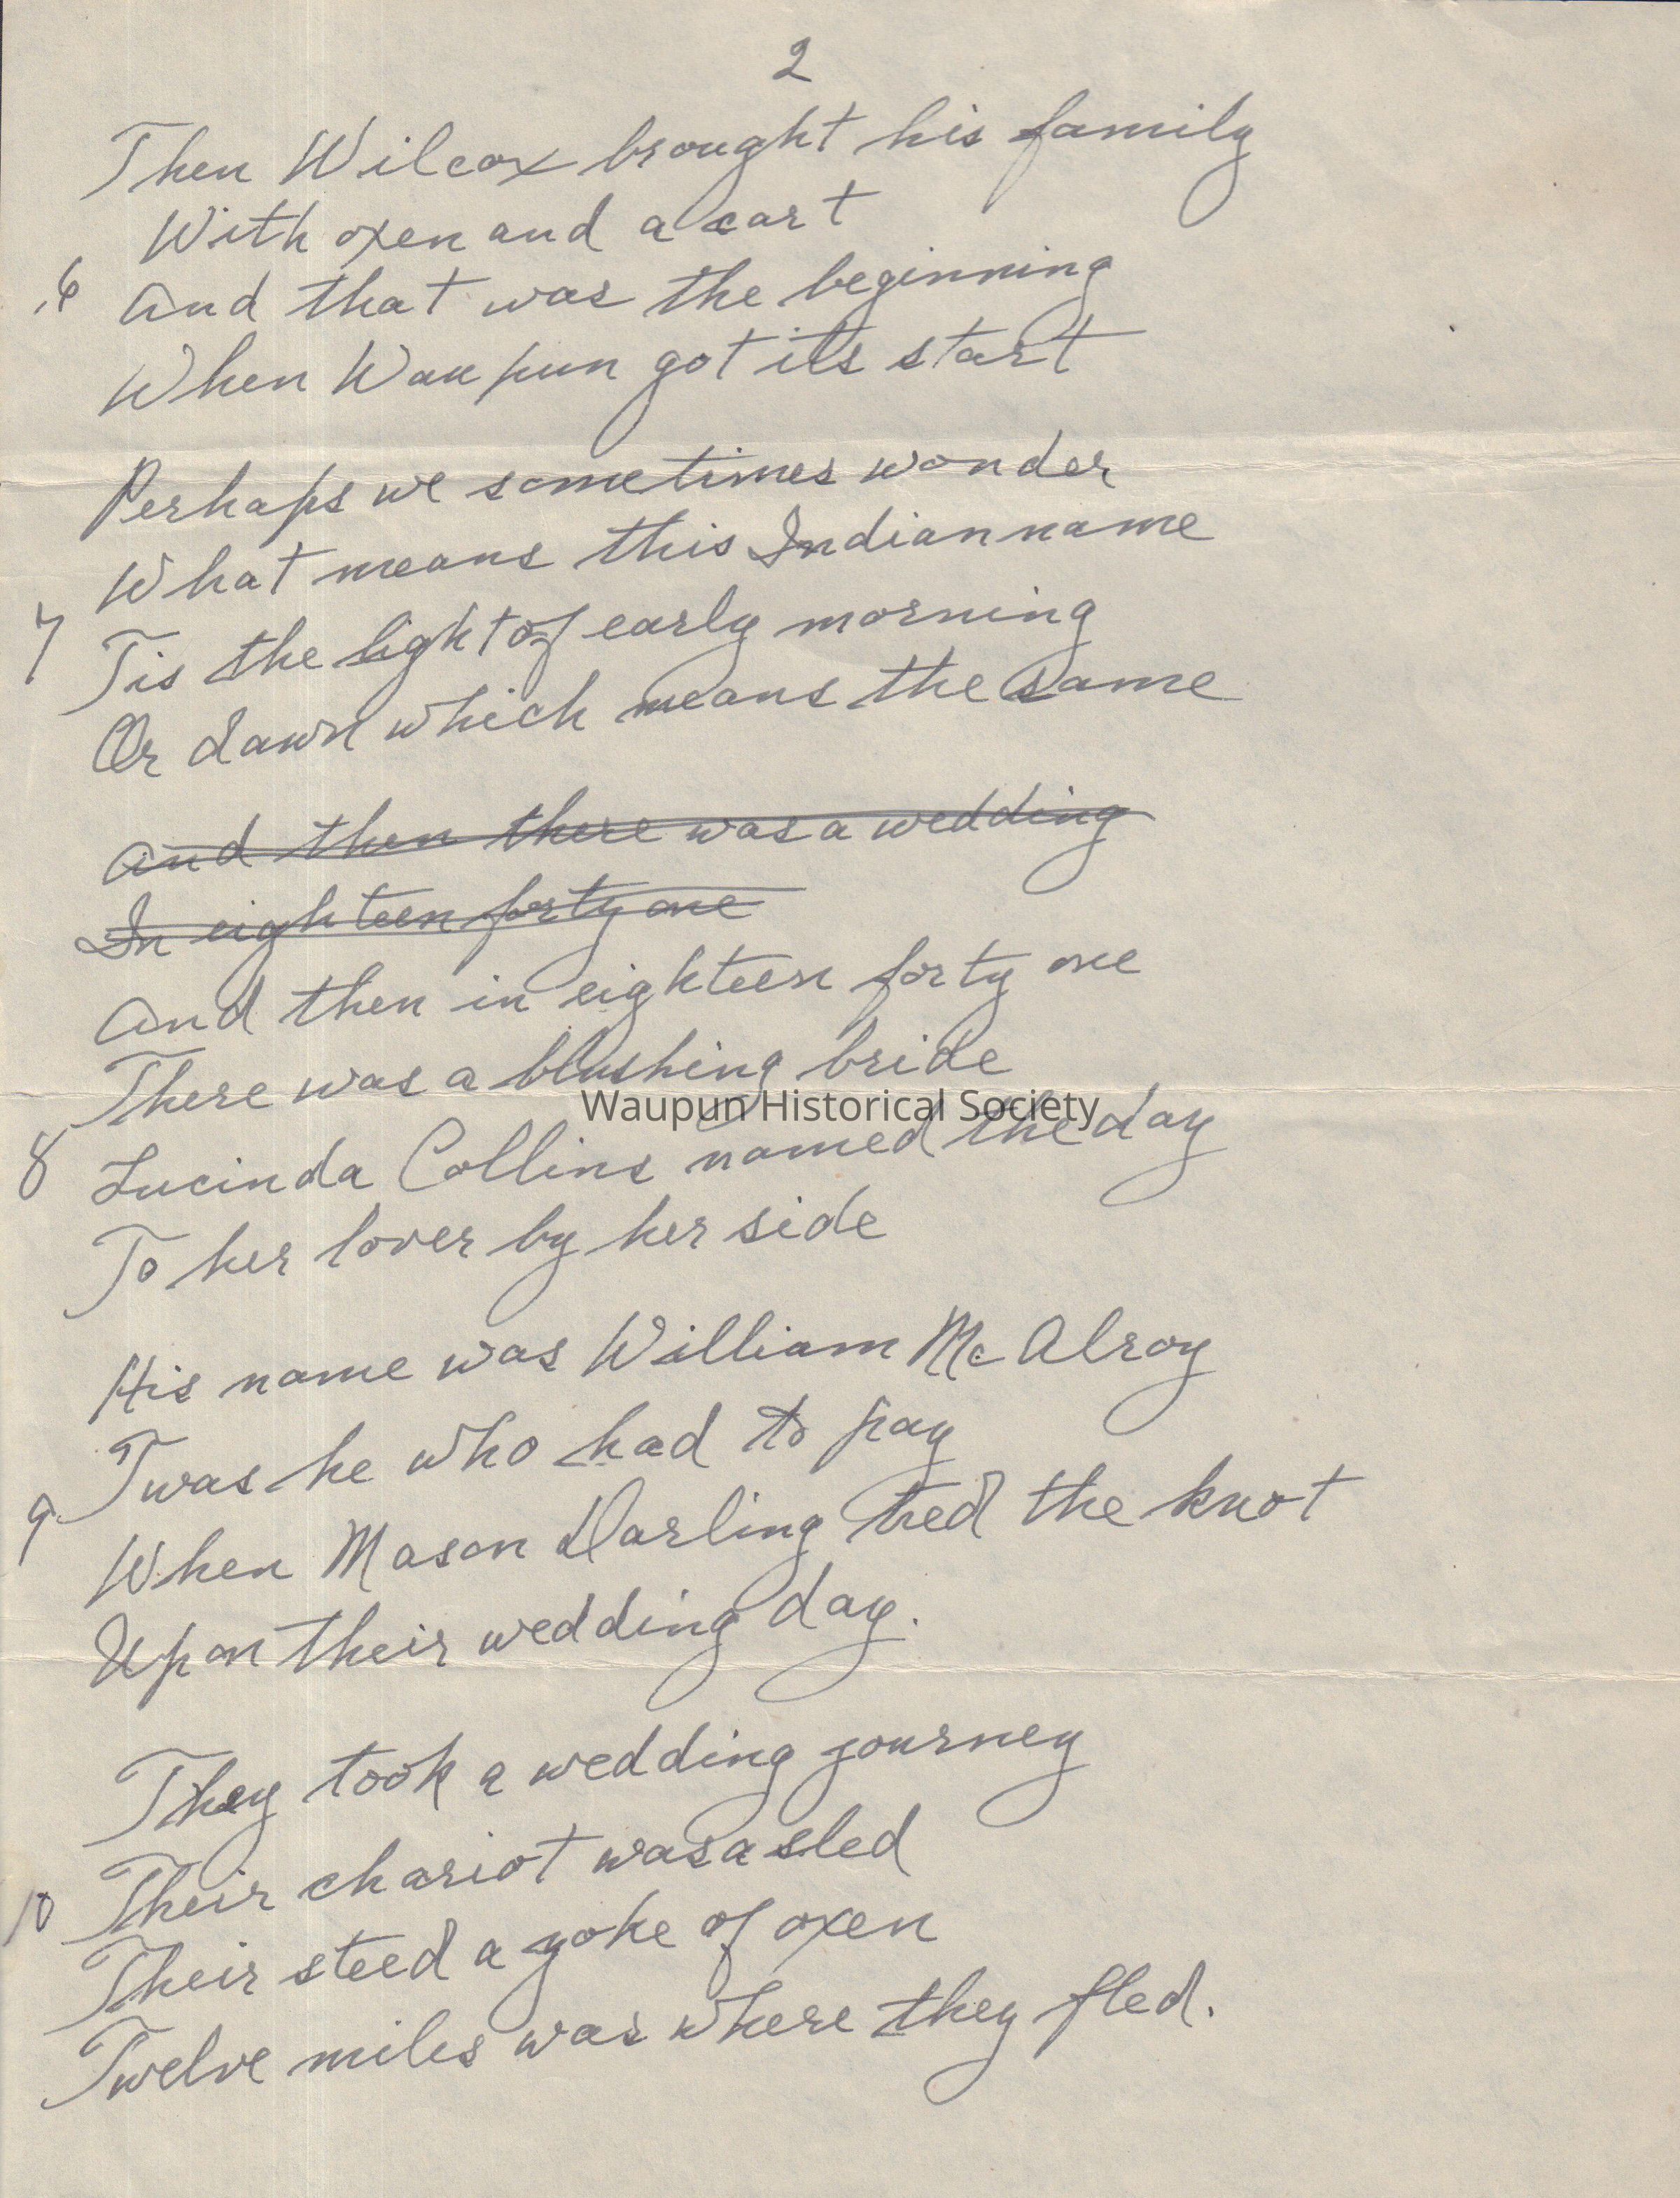 2
Then Wilcox brought his family
With oxen and a cart
6 And that was the beginning
When Waupun got its start
Perhaps we sometimes wonder
What means this Indian name
7 Tis the light of early morning
Or dawn which means the same
And then there was a wedding
In eighteen forty one
And then in eighteen forty one
There was a blushing bride
Waupun Historical Society
8 Lucinda Collins named the day
To her lover by her side
His name was William Mc Alroy
Twas he who had to pay
9 When Mason Darling tied the knot
Upon their wedding day.
They took a wedding journey
10 Their chariot was a sled
Their steed a yoke of oxen
Twelve miles was where they fled.